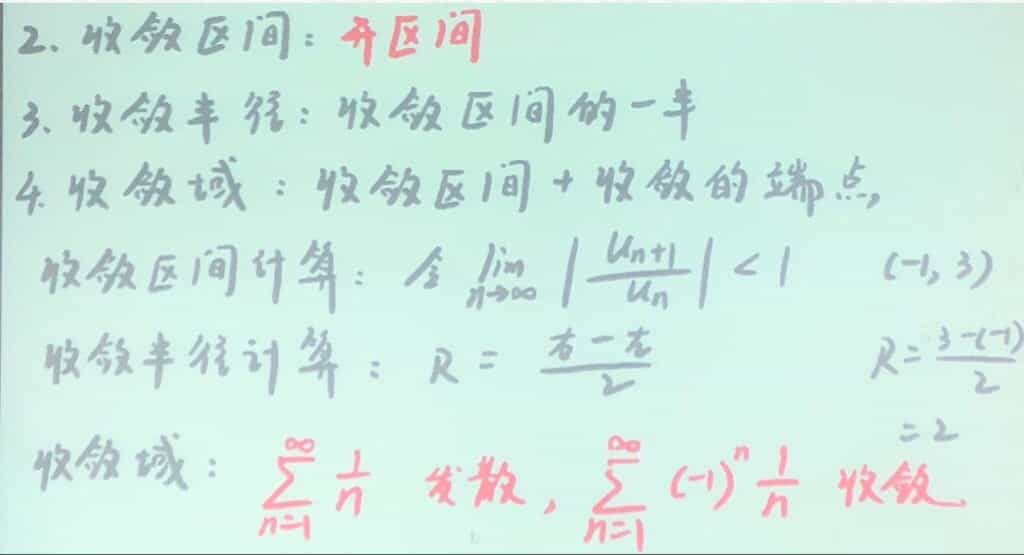 2. 收敛区间：开区间
3. 收敛半径：收敛区间的一半
4. 收敛域：收敛区间 + 收敛的端点,
收敛区间计算：令 lim n→∞ |Un+1/Un| < 1 (-1, 3)
收敛半径计算：R = 右-左/2 R = 3-(-1)/2
= 2
收敛域：∑n=1∞ 1/n 发散, ∑n=1∞ (-1)^n 1/n 收敛.